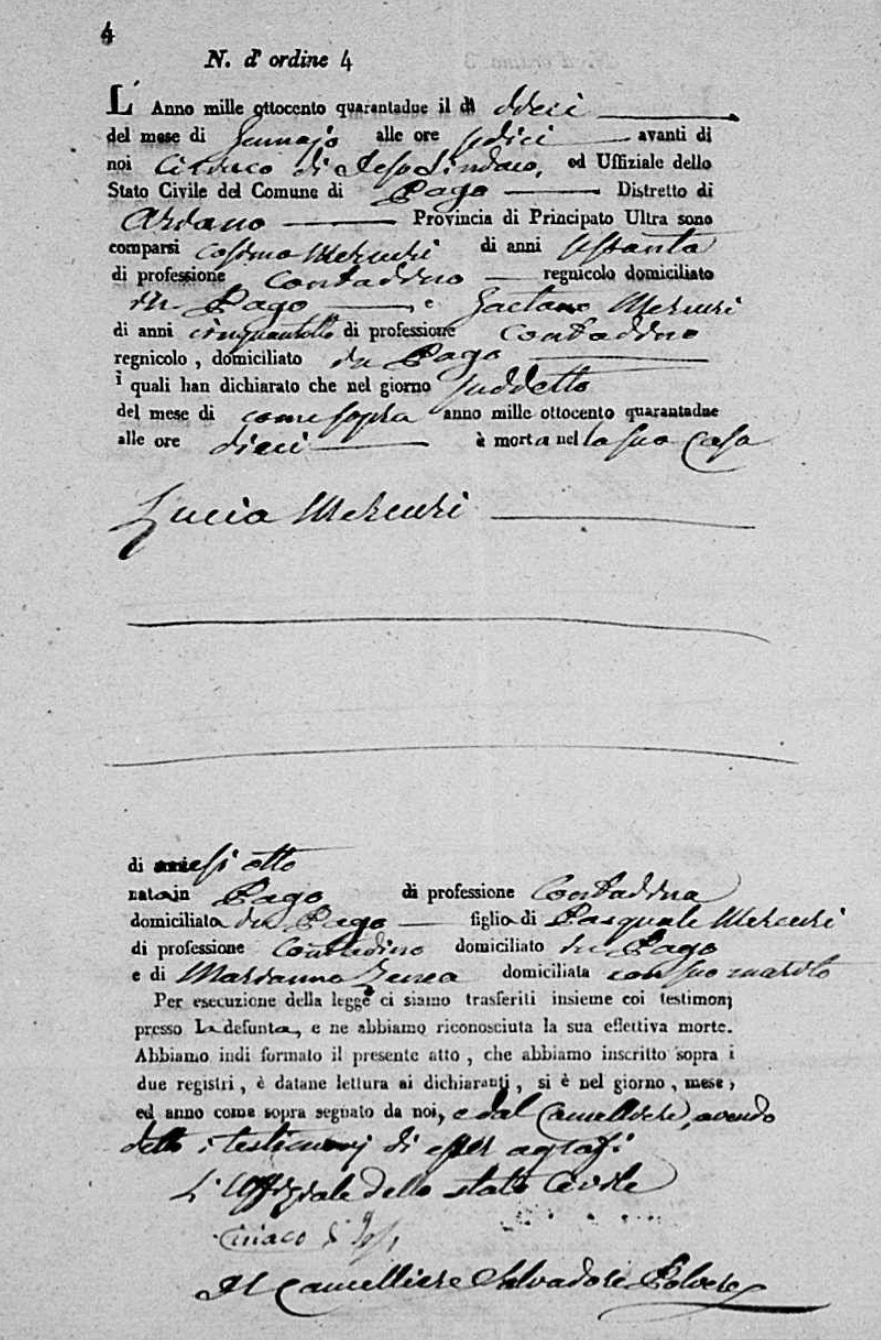 4
N. d' ordine 4
L' Anno mille ottocento quarantadue il dì dieci
del mese di Gennajo alle ore sedici avanti di
noi Ciriaco di Sindaco, ed Uffiziale dello
Stato Civile del Comune di Pago Distretto di
Ariano Provincia di Principato Ultra sono
comparsi Cosimo Mercuri di anni
di professione Contadino regnicolo domiciliato
in Pago e Gaetano Mercuri
di anni cinquantotto di professione Contadino
regnicolo, domiciliato in Pago
i quali han dichiarato che nel giorno suddetto
del mese di come sopra anno mille ottocento quarantadue
alle ore dieci è morta nella sua Casa
Lucia Mercuri
di mesi otto
nata in Pago di professione Contadina
domiciliata in Pago figlia di Pasquale Mercuri
di professione Contadino domiciliato in Pago
e di Marianna domiciliata con suo marito
Per esecuzione della legge ci siamo trasferiti insieme coi testimonj
presso la defunta, e ne abbiamo riconosciuta la sua effettiva morte.
Abbiamo indi formato il presente atto, che abbiamo inscritto sopra i
due registri, è datane lettura ai dichiaranti, si è nel giorno, mese,
ed anno come sopra segnato da noi, e dal Cancelliere, avendo
detto i testimonj di esser
L'Uffiziale dello stato Civile
Ciriaco
Il Cancelliere Salvadore Polvere